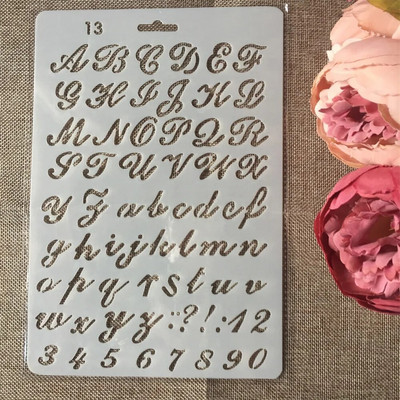 13
A B C D E F
G H I J K L
M N O P Q R
S T U V W X
Y Z a b c d e f
g h i j k l m n
o p q r s t u v
w x y z : ? ! : 1 2
3 4 5 6 7 8 9 0